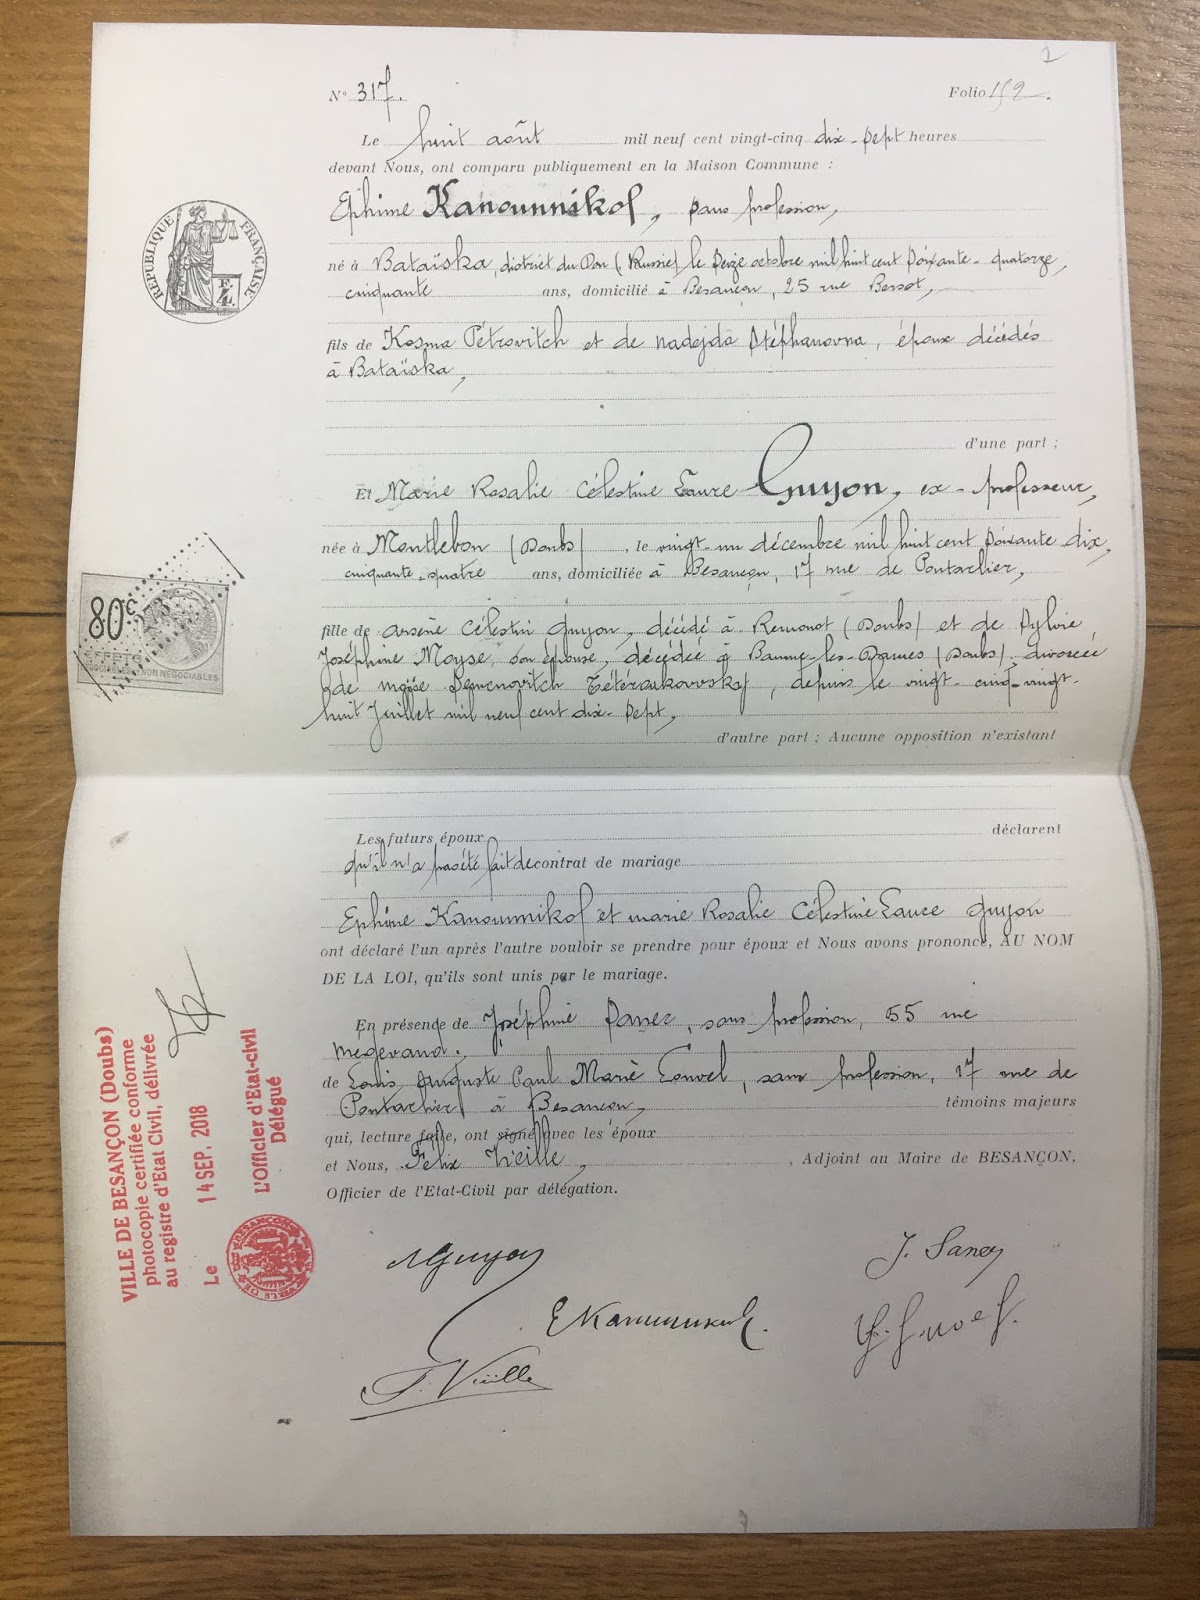 N° 317.
Folio 152.
Le huit août mil neuf cent vingt-cinq dix-sept heures
devant Nous, ont comparu publiquement en la Maison Commune :
Ephime Kanounnikof, sans profession,
né à Bataïska, district du Don (Russie) le seize octobre mil huit cent soixante-quatorze,
cinquante ans, domicilié à Besançon, 25 rue Bersot,
fils de Kosma Pétrovitch et de Nadejda Stéphanovna, époux décédés
à Bataïska,
d'une part ;
Et Marie Rosalie Célestine Laure Guyon, ex-professeur,
née à Montlebon (Doubs), le vingt-un décembre mil huit cent soixante dix,
cinquante-quatre ans, domiciliée à Besançon, 17 rue de Pontarlier,
fille de Arsène Célestin Guyon, décédé à Remonot (Doubs) et de Sylvie
Joséphine Moyse, son épouse, décédée à Baume-les-Dames (Doubs), divorcée
de Moïse Semenovitch, depuis le vingt-cinq-vingt-
huit Juillet mil neuf cent dix-sept,
d'autre part ; Aucune opposition n'existant
Les futurs époux déclarent
qu'il n'a pas été fait de contrat de mariage
Ephime Kanounnikof et Marie Rosalie Célestine Laure Guyon
ont déclaré l'un après l'autre vouloir se prendre pour époux et Nous avons prononcé, AU NOM
DE LA LOI, qu'ils sont unis par le mariage.
En présence de Joséphine Saney, sans profession, 55 rue
Megevand,
de Louis Auguste Paul Marie, sans profession, 17 rue de
Pontarlier à Besançon, témoins majeurs
qui, lecture faite, ont signé avec les époux
et Nous, Félix Vieille, Adjoint au Maire de BESANÇON,
Officier de l'Etat-Civil par délégation.
Guyon
J. Saney
E Kanounnikof.
F. Vieille
RÉPUBLIQUE FRANÇAISE
80c
EFFETS
NON NÉGOCIABLES
VILLE DE BESANÇON (Doubs)
photocopie certifiée conforme
au registre d'Etat Civil, délivrée
Le 14 SEP. 2018
L'Officier d'Etat-civil
Délégué